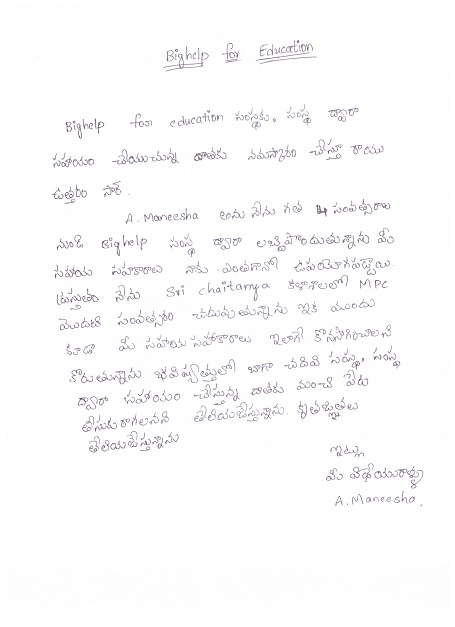 Bighelp for Education
Bighelp for education సంస్థకు, సంస్థ ద్వారా
సహాయం చేయుచున్న దాతకు నమస్కారం చేస్తూ రాయు
ఉత్తరం సార్.
A. Maneesha అను నేను గత 4 సంవత్సరాల
నుండి Bighelp సంస్థ ద్వారా లబ్ధిపొందుతున్నాను మీ
సహాయ సహకారాలు నాకు ఎంతగానో ఉపయోగపడ్డాయి.
ప్రస్తుతం నేను Sri chaitanya కళాశాలలో MPC
మొదటి సంవత్సరం చదువుతున్నాను ఇక ముందు
కూడా మీ సహాయ సహాకారాలు ఇలాగే కొనసాగించాలని
కోరుతున్నాను భవిష్యత్తులో బాగా చదివి సంస్థ, సంస్థ
ద్వారా సహాయం చేస్తున్న దాతకు మంచి పేరు
తీసుకురాగలనని తెలియజేస్తున్నాను. కృతజ్ఞతలు
తెలియజేస్తున్నాను
ఇట్లు
మీ విధేయురాళ్ళు
A. Maneesha,